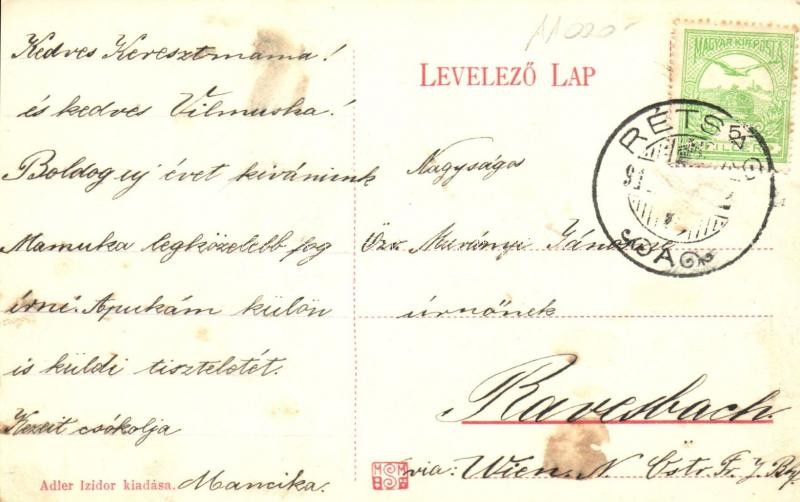 Kedves Keresztmama!
és kedves Vilmuska!
Boldog uj évet kivánunk
Mamuka legközelebb fog
irni. Apukám külön
is küldi tiszteletét.
Kezeit csókolja
Mancika.
Adler Izidor kiadása.
11020-
LEVELEZŐ LAP
MAGYAR KIR. POSTA
5
FILLÉR
RÉTSÁG
Nagyságos
Özv. Murányi Jánosné
úrnőnek
Ravesbach
via: Wien. N. Östr. Fr. J. B
M M